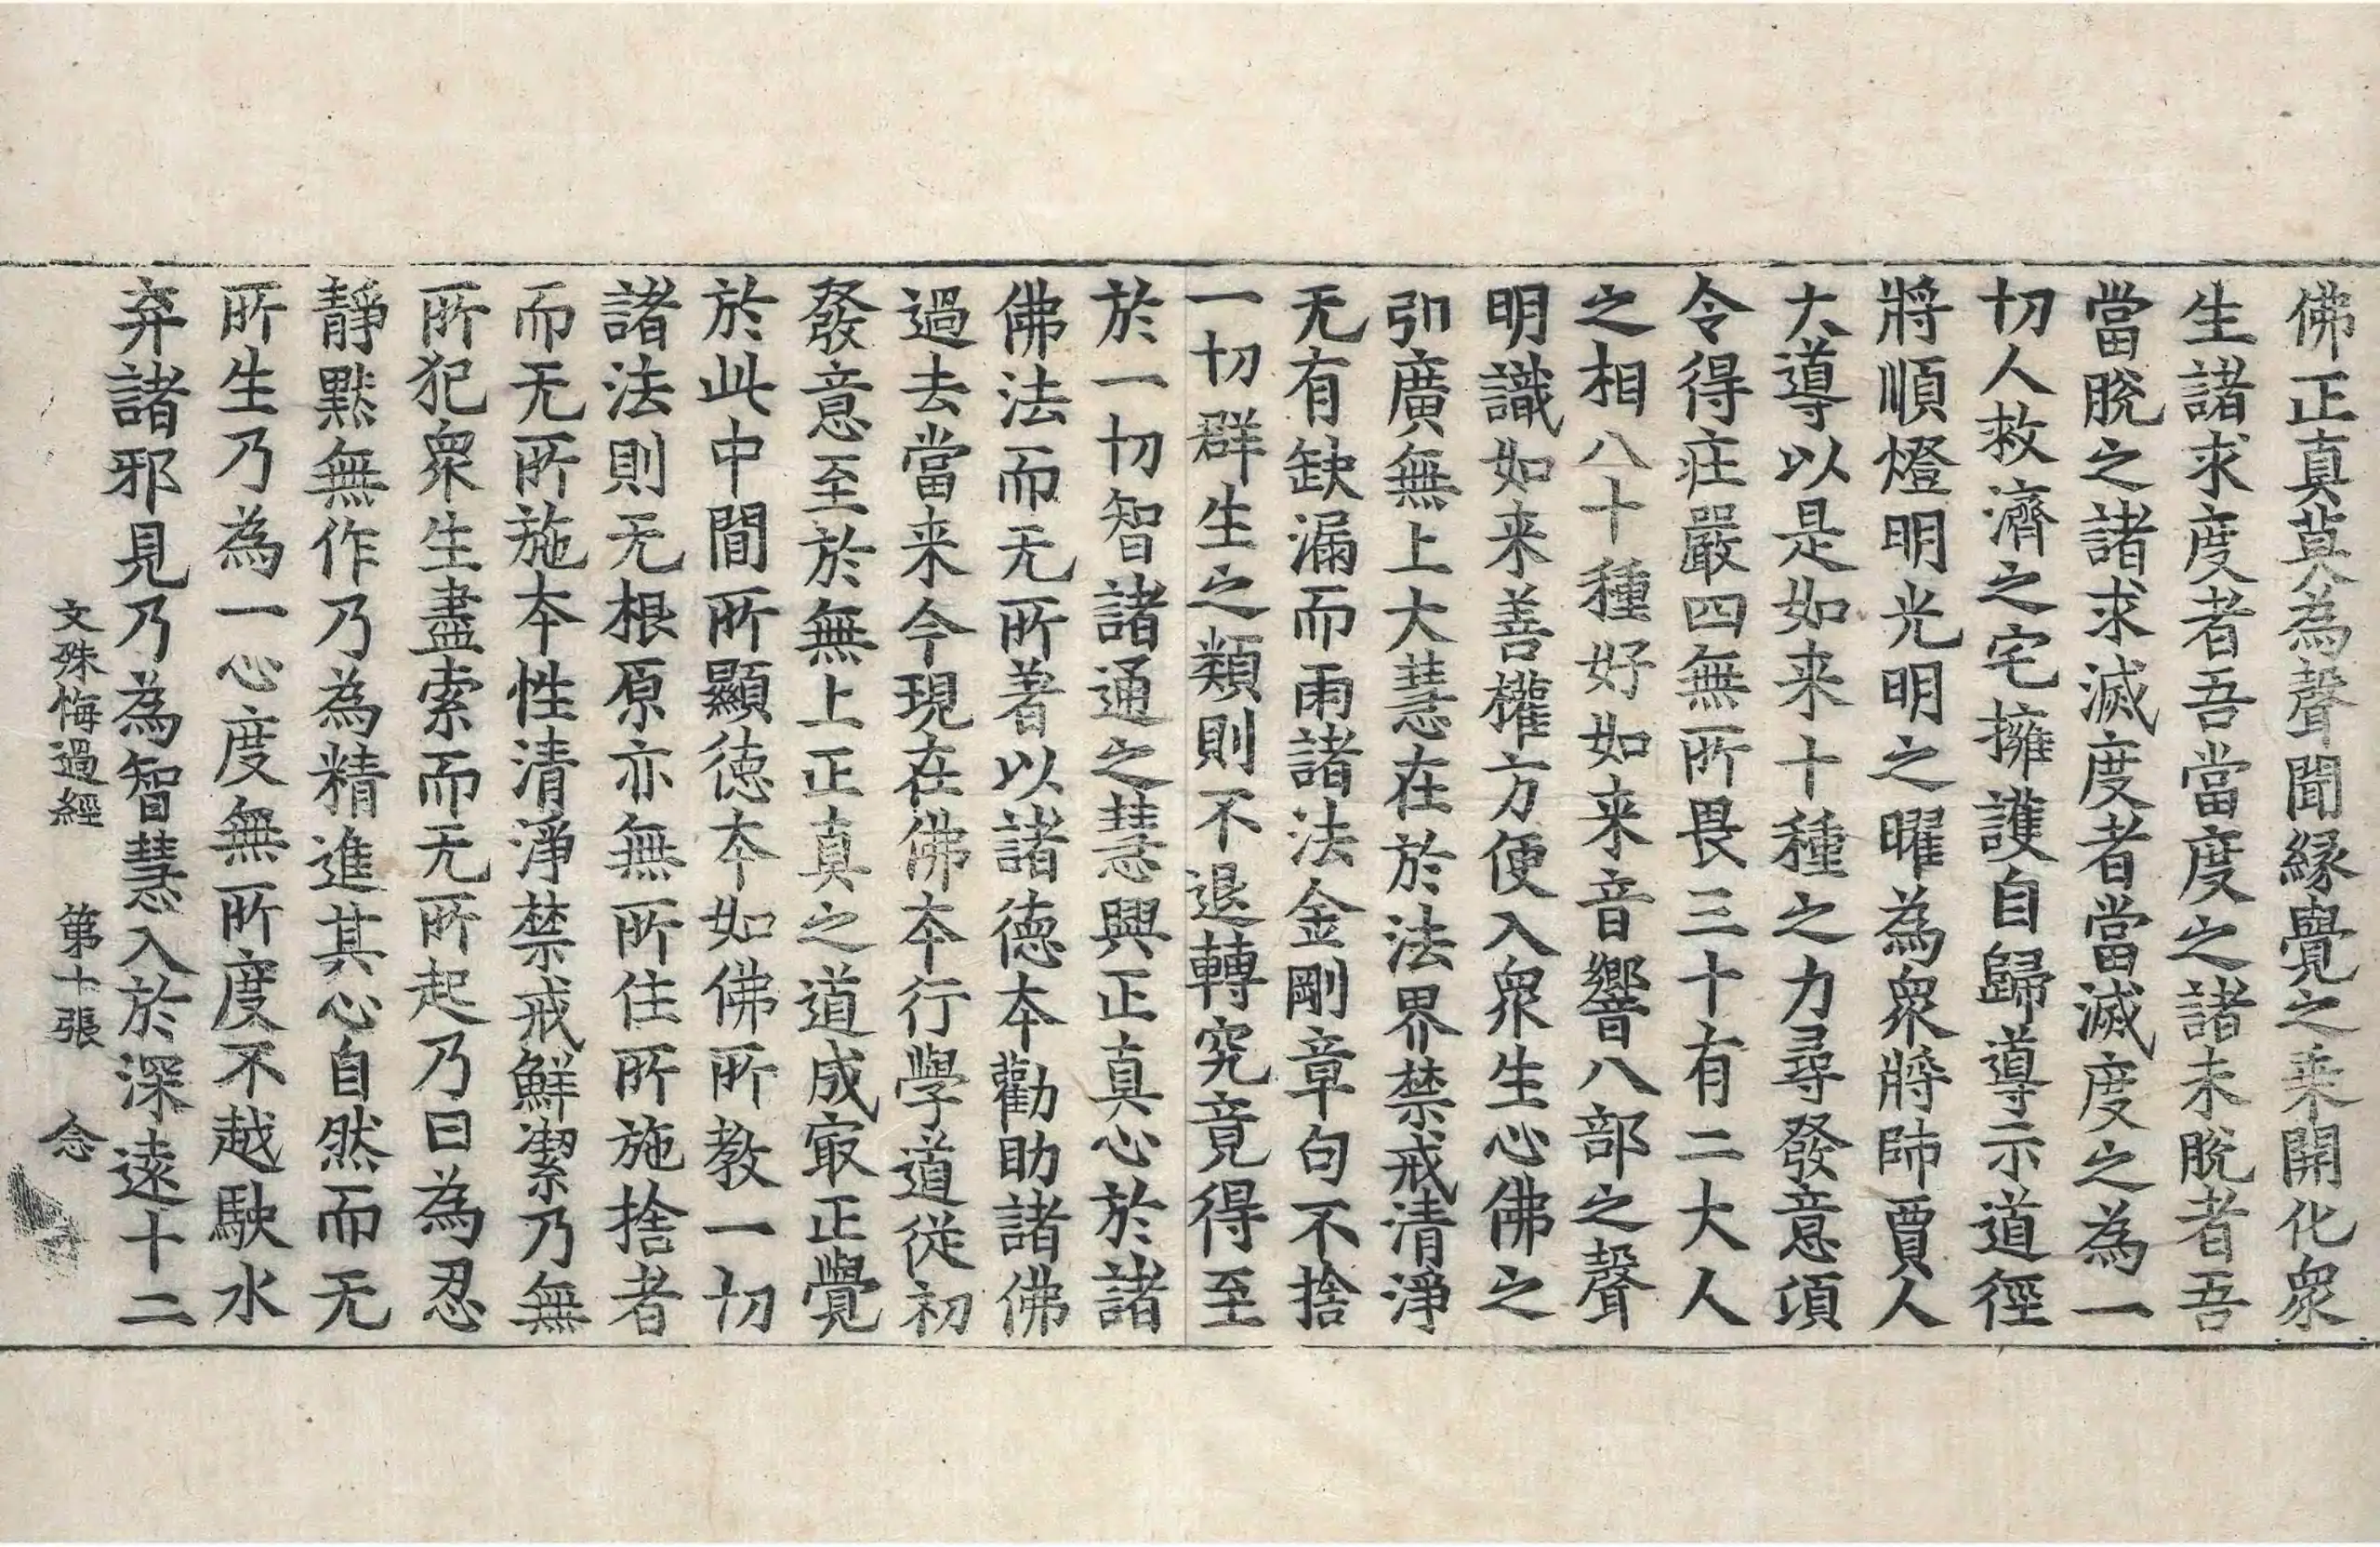 佛正真莫為聲聞縁覺之乘開化衆
生諸求度者吾當度之諸未脫者吾
當脫之諸求滅度者當滅度之為一
切人救濟之宅擁護自歸導示道徑
將順燈明光明之曜為衆將帥賈人
大導以是如来十種之力尋發意頃
令得莊嚴四無所畏三十有二大人
之相八十種好如来音響八部之聲
明識如来善權方便入衆生心佛之
引廣無上大慧在於法界禁戒清淨
无有缺漏而雨諸法金剛章句不捨
一切群生之類則不退轉究竟得至
於一切智諸通之慧興正真心於諸
佛法而无所著以諸德本勸助諸佛
過去當来今現在佛本行學道從初
發意至於無上正真之道成㝡正覺
於此中間所顯德本如佛所教一切
諸法則无根原亦無所住所施捨者
而无所施本性清淨禁戒鮮潔乃無
所犯衆生盡索而无所起乃曰為忍
靜默無作乃為精進其心自然而无
所生乃為一心度無所度不越駃水
弃諸邪見乃為智慧入於深遠十二
文殊悔過經 第十張 念